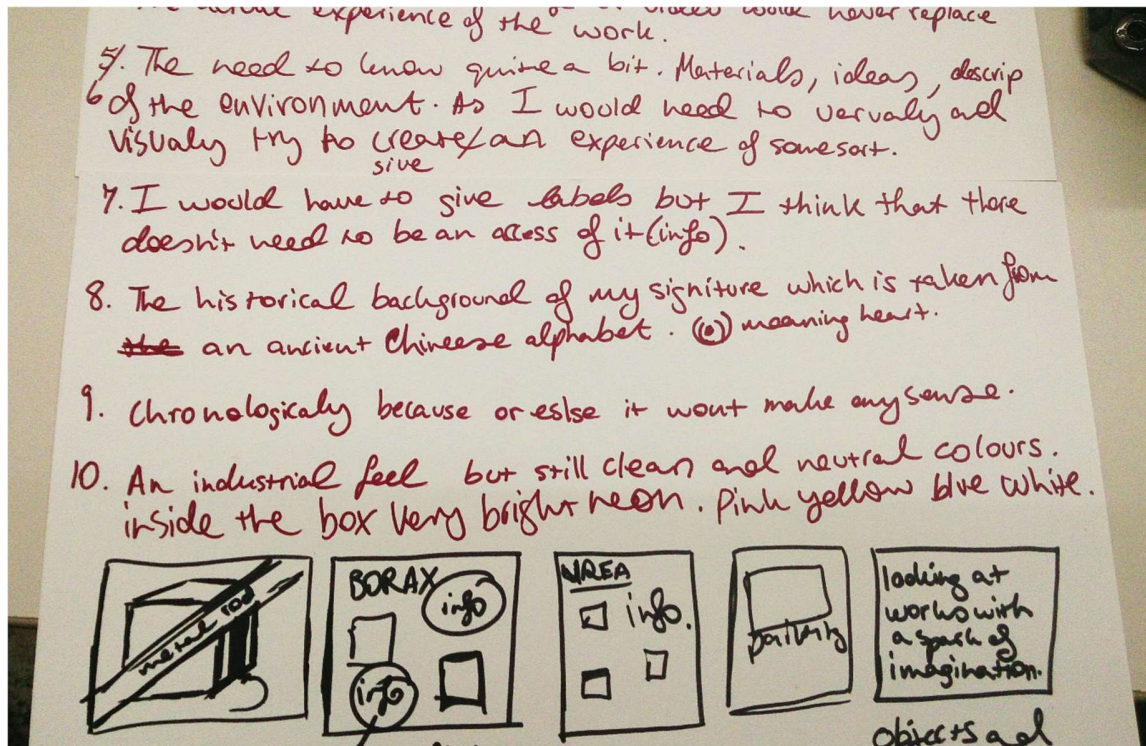 experience of the work. would never replace
5/. The need to know quite a bit. Materials, ideas, descrip
6 of the environment. As I would need to vervaly and
visualy try to create/an experience of somesort.
give
7. I would have to give labels but I think that there
doesn't need to be an access of it (info).
8. The historical background of my signiture which is taken from
the an ancient Chineese alphabet. meaning heart.
9. Chronologicaly because or eslse it wont make any sense.
10. An industrial feel but still clean and neutral colours.
inside the box very bright neon. Pink yellow blue white.
metal rod
BORAX
info
info
UREA
info.
painting
looking at
works with
a spark of
imagination.
objects and